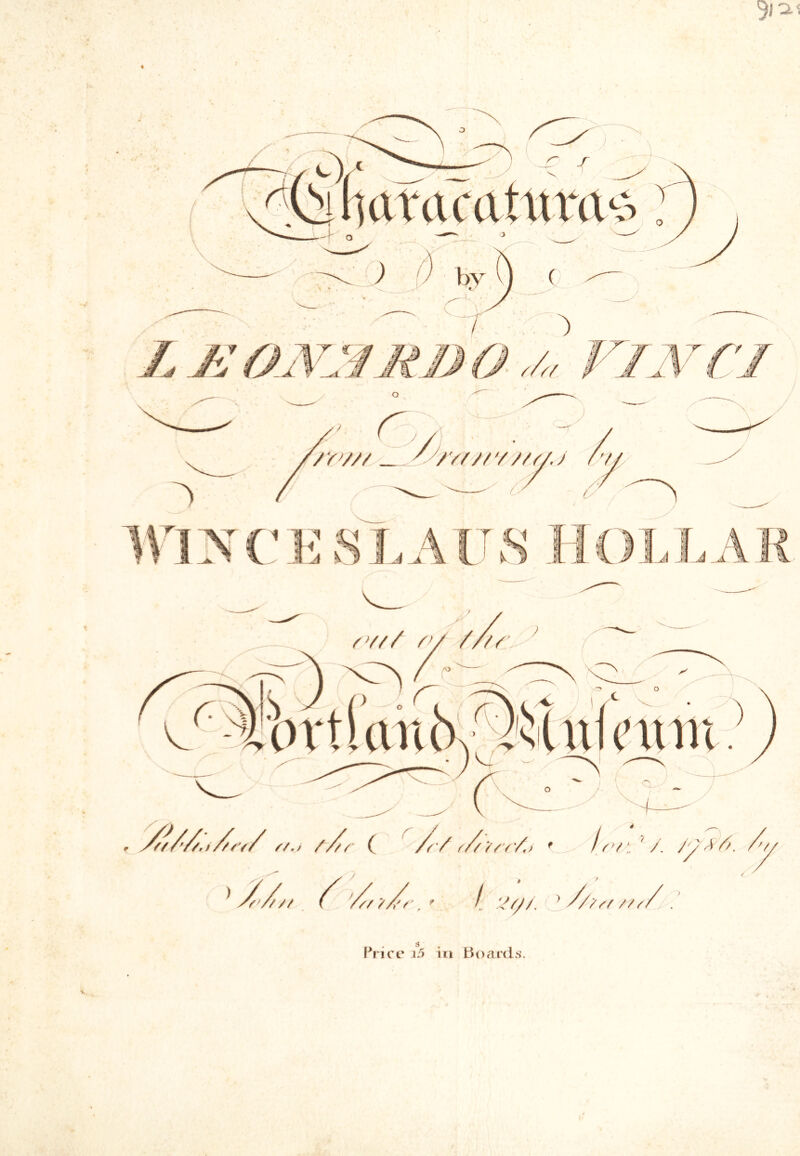 912
Characaturas
by
LEONARDO da VINCI
from Drawings by
WINCESLAUS HOLLAR
out of the
Portland Museum.
Published as the Act directs Novr. 1. 1786. by
John Clarke, N. 291. Strand.
Price 15s in Boards.